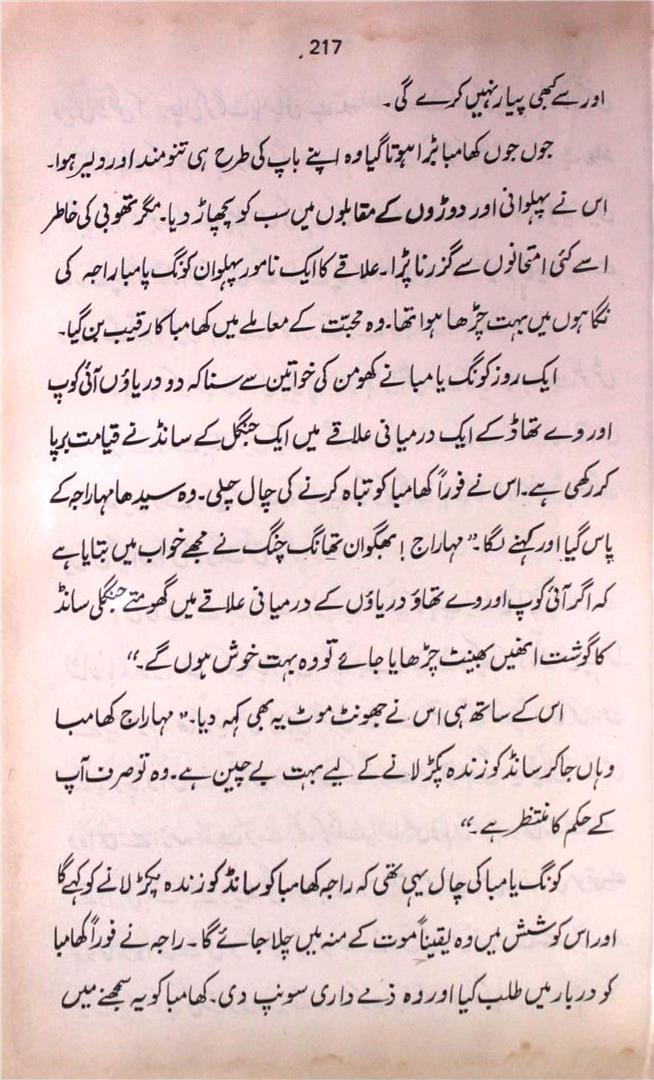 217
اور سے کبھی پیار نہیں کرے گی۔
جوں جوں کھامبا بڑا ہوتا گیا وہ اپنے باپ کی طرح ہی تنومند اور دلیر ہوا۔
اس نے پہلوانی اور دوڑوں کے مقابلوں میں سب کو پچھاڑ دیا۔ مگر تھوبی کی خاطر
اسے کئی امتحانوں سے گزرنا پڑا۔ علاقے کا ایک نامور پہلوان کونگ یامبا راجہ کی
نگاہوں میں بہت چڑھا ہوا تھا۔ وہ محبت کے معاملے میں کھامبا کا رقیب بن گیا۔
ایک روز کونگ یامبا نے کھومن کی خواتین سے سنا کہ دو دریاؤں آئی کوپ
اور وے تھاؤ کے ایک درمیانی علاقے میں ایک جنگل کے سانڈ نے قیامت برپا
کر رکھی ہے۔ اس نے فوراً کھامبا کو تباہ کرنے کی چال چلی۔ وہ سیدھا مہاراجہ کے
پاس گیا اور کہنے لگا۔ ”مہاراج! بھگوان تھانگ جنگ نے مجھے خواب میں بتایا ہے
کہ اگر آئی کوپ اور وے تھاؤ دریاؤں کے درمیانی علاقے میں گھومتے جنگلی سانڈ
کا گوشت انھیں بھینٹ چڑھایا جائے تو وہ بہت خوش ہوں گے۔“
اس کے ساتھ ہی اس نے جھونٹ موٹ یہ بھی کہہ دیا۔ ”مہاراج کھامبا
وہاں جا کر سانڈ کو زندہ پکڑ لانے کے لیے بہت بے چین ہے۔ وہ تو صرف آپ
کے حکم کا منتظر ہے۔“
کونگ یامبا کی چال یہی تھی کہ راجہ کھامبا کو سانڈ کو زندہ پکڑ لانے کو کہے گا
اور اس کوشش میں وہ یقیناً موت کے منہ میں چلا جائے گا۔ راجہ نے فوراً کھامبا
کو دربار میں طلب کیا اور وہ ذمے داری سونپ دی۔ کھامبا کو یہ سمجھنے میں